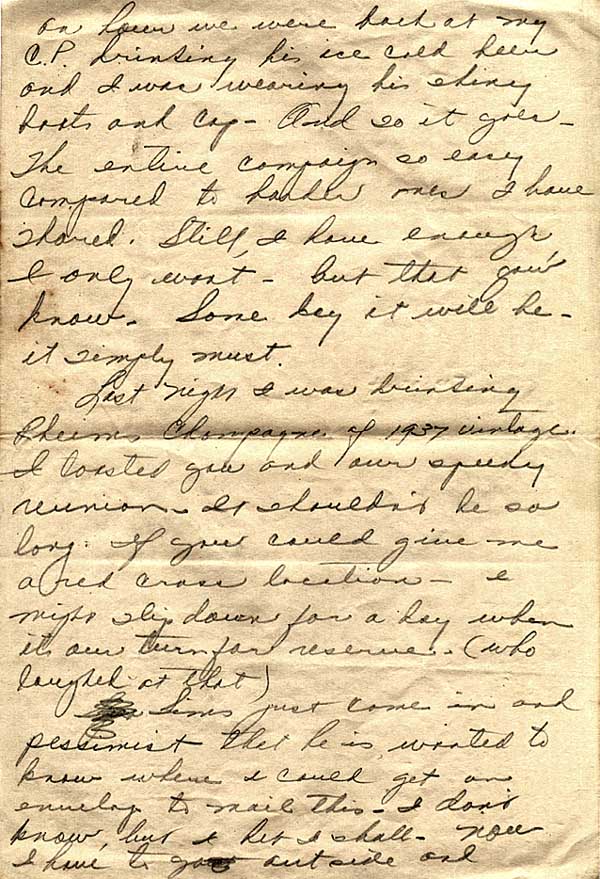 an hour we were back at my
C.P. drinking his ice cold beer
and I was wearing his shiny
boots and cap - And so it goes -
The entire campaign so easy
compared to harder ones I have
shared. Still, I have enough,
I only want - but that you
know. Some day it will be -
it simply must.
Last night I was drinking
Rheims Champagne of 1937 vintage.
I toasted you and our speedy
reunion. It shouldn't be so
long. If you could give me
a red cross location - I
might slip down for a day when
it's our turn for reserve. (who
laughed at that)
Sims just came in and
pessimist that he is, wanted to
know where I could get an
envelop to mail this - I don't
know, but I bet I shall - Now
I have to go outside and